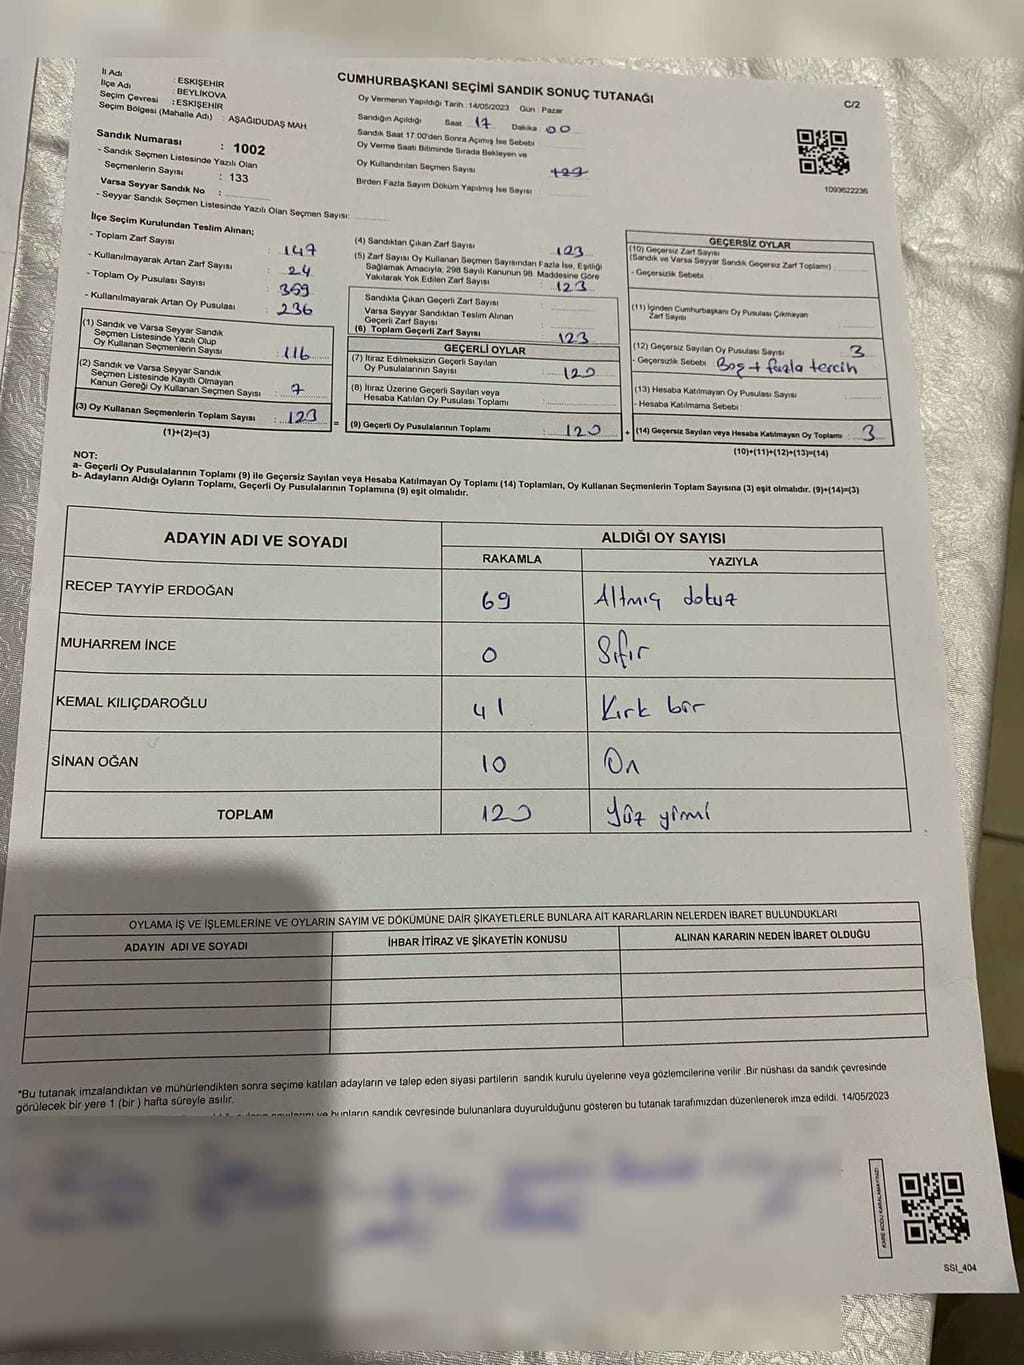 CUMHURBAŞKANI SEÇİMİ SANDIK SONUÇ TUTANAĞI
C/2
İl Adı : ESKİŞEHİR
İlçe Adı : BEYLİKOVA
Seçim Çevresi : ESKİŞEHİR
Seçim Bölgesi (Mahalle Adı) : AŞAĞIDUDAŞ MAH.
Sandık Numarası : 1002
- Sandık Seçmen Listesinde Yazılı Olan
Seçmenlerin Sayısı : 133
Varsa Seyyar Sandık No :
- Seyyar Sandık Seçmen Listesinde Yazılı Olan Seçmen Sayısı:
Oy Vermenin Yapıldığı Tarih : 14/05/2023 Gün : Pazar
Sandığın Açıldığı Saat 17 Dakika : 00
Sandık Saat 17:00'den Sonra Açımış İse Sebebi
Oy Verme Saati Bitiminde Sırada Bekleyen ve
Oy Kullandırılan Seçmen Sayısı
Birden Fazla Sayım Döküm Yapılmış İse Sayısı
1093622236
İlçe Seçim Kurulundan Teslim Alınan;
- Toplam Zarf Sayısı : 147
- Kullanılmayarak Artan Zarf Sayısı : 24
- Toplam Oy Pusulası Sayısı : 359
- Kullanılmayarak Artan Oy Pusulası : 236
(1) Sandık ve Varsa Seyyar Sandık
Seçmen Listesinde Yazılı Olup
Oy Kullanan Seçmenlerin Sayısı : 116
(2) Sandık ve Varsa Seyyar Sandık
Seçmen Listesinde Kayıtlı Olmayan
Kanun Gereği Oy Kullanan Seçmen Sayısı : 7
(3) Oy Kullanan Seçmenlerin Toplam Sayısı : 123
(1)+(2)=(3)
=
(4) Sandıktan Çıkan Zarf Sayısı : 123
(5) Zarf Sayısı Oy Kullanan Seçmen Sayısından Fazla İse, Eşitliği
Sağlamak Amacıyla, 298 Sayılı Kanunun 98. Maddesine Göre
Yakılarak Yok Edilen Zarf Sayısı : 123
Sandıkta Çıkan Geçerli Zarf Sayısı :
Varsa Seyyar Sandıktan Teslim Alınan
Geçerli Zarf Sayısı :
(6) Toplam Geçerli Zarf Sayısı : 123
GEÇERLİ OYLAR
(7) İtiraz Edilmeksizin Geçerli Sayılan
Oy Pusulalarının Sayısı : 120
(8) İtiraz Üzerine Geçerli Sayılan veya
Hesaba Katılan Oy Pusulası Toplamı :
(9) Geçerli Oy Pusulalarının Toplamı : 120
+
GEÇERSİZ OYLAR
(10) Geçersiz Zarf Sayısı
(Sandık ve Varsa Seyyar Sandık Geçersiz Zarf Toplamı) :
- Geçersizlik Sebebi :
(11) İçinden Cumhurbaşkanı Oy Pusulası Çıkmayan
Zarf Sayısı :
(12) Geçersiz Sayılan Oy Pusulası Sayısı : 3
- Geçersizlik Sebebi : Boş + fazla tercih
(13) Hesaba Katılmayan Oy Pusulası Sayısı :
- Hesaba Katılmama Sebebi :
(14) Geçersiz Sayılan veya Hesaba Katılmayan Oy Toplamı : 3
(10)+(11)+(12)+(13)=(14)
NOT:
a- Geçerli Oy Pusulalarının Toplamı (9) ile Geçersiz Sayılan veya Hesaba Katılmayan Oy Toplamı (14) Toplamları, Oy Kullanan Seçmenlerin Toplam Sayısına (3) eşit olmalıdır. (9)+(14)=(3)
b- Adayların Aldığı Oyların Toplamı, Geçerli Oy Pusulalarının Toplamına (9) eşit olmalıdır.
ADAYIN ADI VE SOYADI
ALDIĞI OY SAYISI
RAKAMLA YAZIYLA
RECEP TAYYİP ERDOĞAN 69 Altmış dokuz
MUHARREM İNCE 0 Sıfır
KEMAL KILIÇDAROĞLU 41 Kırk bir
SİNAN OĞAN 10 On
TOPLAM 120 Yüz yirmi
OYLAMA İŞ VE İŞLEMLERİNE VE OYLARIN SAYIM VE DÖKÜMÜNE DAİR ŞİKAYETLERLE BUNLARA AİT KARARLARIN NELERDEN İBARET BULUNDUKLARI
ADAYIN ADI VE SOYADI İHBAR İTİRAZ VE ŞİKAYETİN KONUSU ALINAN KARARIN NEDEN İBARET OLDUĞU
*Bu tutanak imzalandıktan ve mühürlendikten sonra seçime katılan adayların ve talep eden siyasi partilerin sandık kurulu üyelerine veya gözlemcilerine verilir .Bir nüshası da sandık çevresinde
görülecek bir yere 1 (bir ) hafta süreyle asılır.
ve bunların sandık çevresinde bulunanlara duyurulduğunu gösteren bu tutanak tarafımızdan düzenlenerek imza edildi. 14/05/2023
KARE KODU KARALAMAYINIZ!
SSI_404